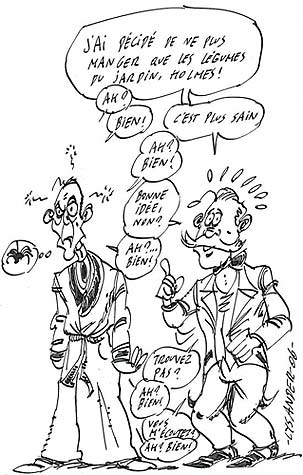 J'AI DÉCIDÉ DE NE PLUS
MANGER QUE LES LÉGUMES
DU JARDIN, HOLMES!
AH?
BIEN!
C'EST PLUS SAIN
AH?
BIEN!
BONNE
IDÉE,
NON?
AH?...
BIEN!
TROUVEZ
PAS?
AH?
BIEN!
VOUS
M'ÉCOUTEZ?
AH? BIEN!
-LYSANDER-06-